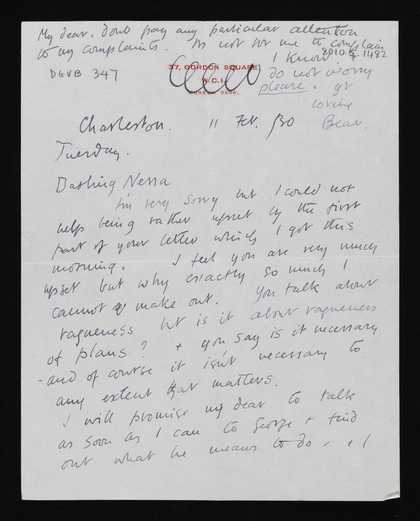 My dear. Don't pay any particular attention
to my complaints. Its not for me to complain
I know
do not worry
please. yr
loving
Bear.
DGVB 347
3010.5.1482
37, GORDON SQUARE
W.C.1.
Charleston. 11 Feb. /30
Tuesday.
Darling Nessa
Im very sorry but I could not
help being rather upset by the first
part of your letter which I got this
morning. I feel you are very much
upset but why exactly so much I
cannot make out. You talk about
vagueness but is it about vagueness
of plans? + you say is it necessary
- and of course it isn't necessary to
any extent that matters.
I will promise my dear to talk
as soon as I can to George + find
out what he means to do . . I